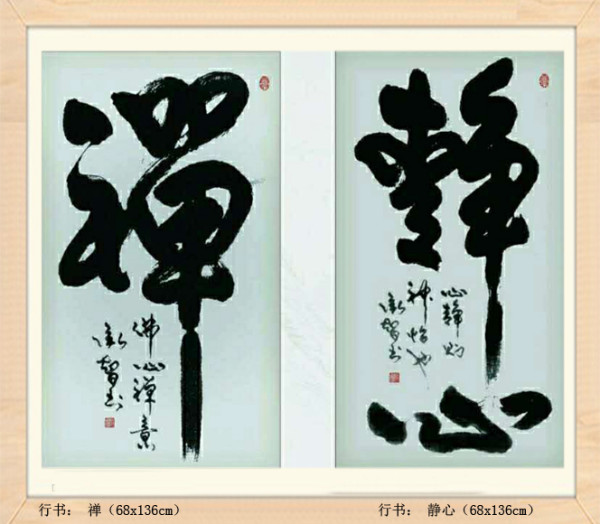 禪
佛心禪意
智书
靜
心
心靜则
神怡也
智书
行书： 禅（68x136cm）
行书： 静心（68x136cm）